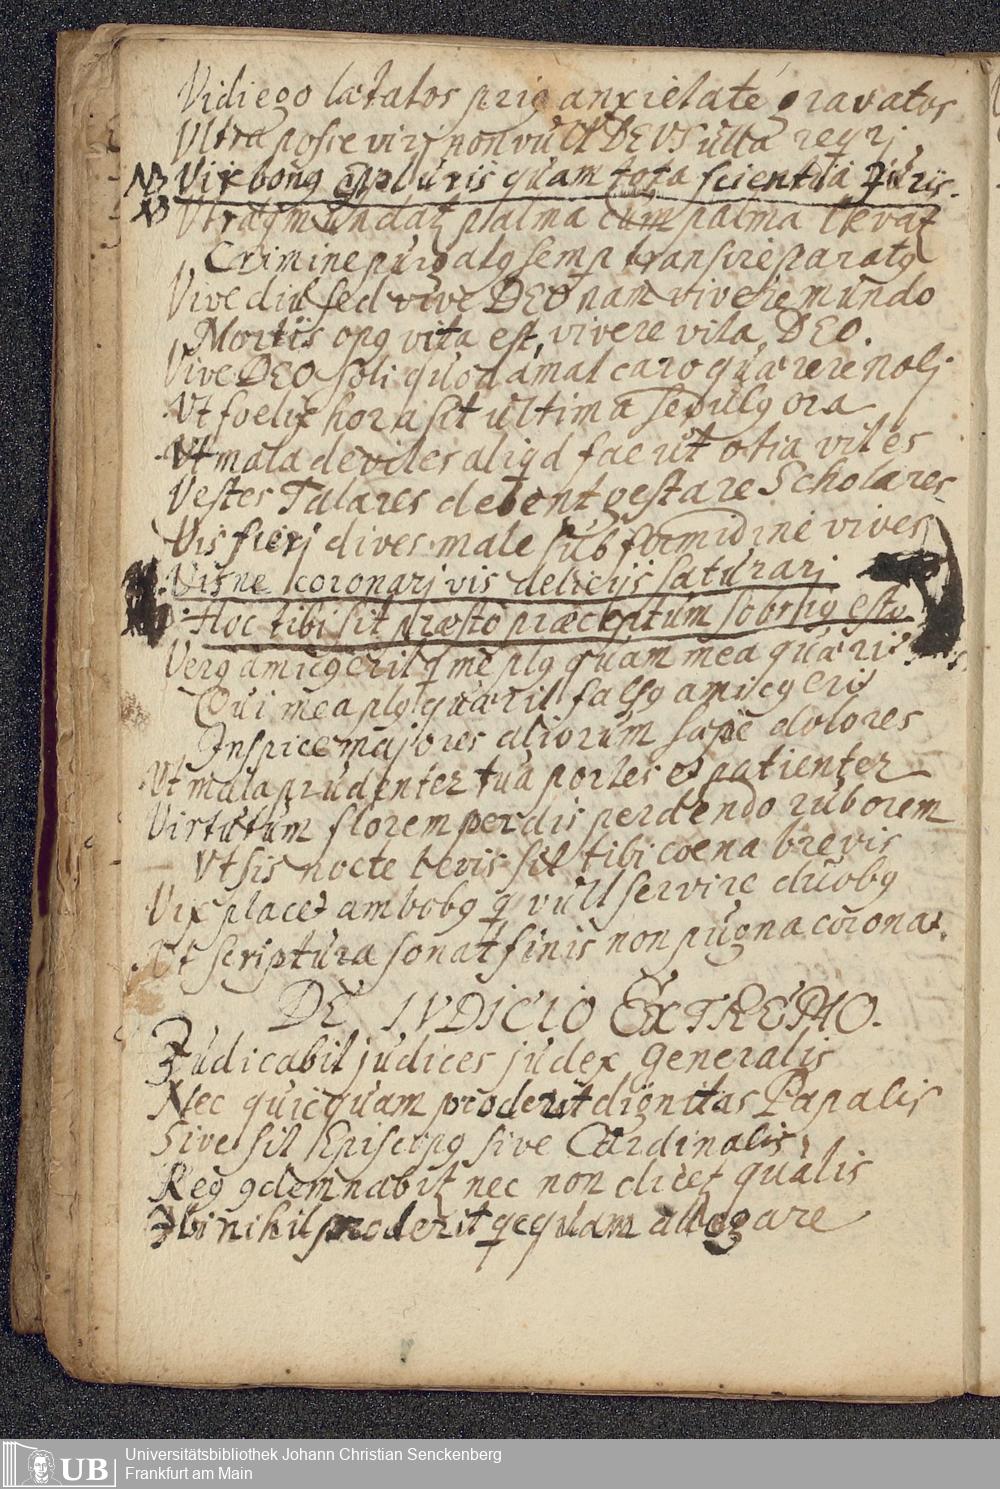 Vidi ego lætatos priꝯ anxietate gravatos
Ultra posse viri non vult DEUS ulla reqri
NB Vir bonꝯ est pluris quam tota scientia Juris.
NB Utraqꝫ mundatꝛ psalma cum palma levatꝛ
Crimine purgatꝯ semp transire paratꝯ
Vive diu sed vive DEO nam vivere mundo
Mortis opꝯ vita est, vivere vita DEO.
Vive DEO soli quod amat caro quærere noli
Ut foelix hora sit ultima sedulꝯ ora
Ut mala devites aliqd fac ut otia vites
Vestes Talares debent gestare Scholares
Vis fieri dives male sub formidine vives
Visne coronari vis delicijs saturari
Hoc tibi sit præsto præceptum sobriꝯ esto
Verꝯ amicꝯ erit q me plꝯ quam mea quærit
Qui mea plꝯ quærit falsꝯ amicꝯ erit
Inspice majores aliorum sæpe dolores
Ut mala prudenter tua portes et patienter
Virtutum florem perdis perdendo ruborem
Ut sis nocte levis sit tibi coena brevis
Vix placet ambobꝯ q vult servire duobꝯ
Ut scriptura sonat finis non pugna coronat.
DE IVDICIO EXTREMO.
Judicabit judices judex generalis
Nec quicquam proderit dignitas Papalis
Sive sit Episcopꝯ sive Cardinalis
Reꝯ ꝯdemnabitꝛ nec non dicet qualis
Ibi nihil proderit qcquam allegare
UB Universitätsbibliothek Johann Christian Senckenberg
Frankfurt am Main